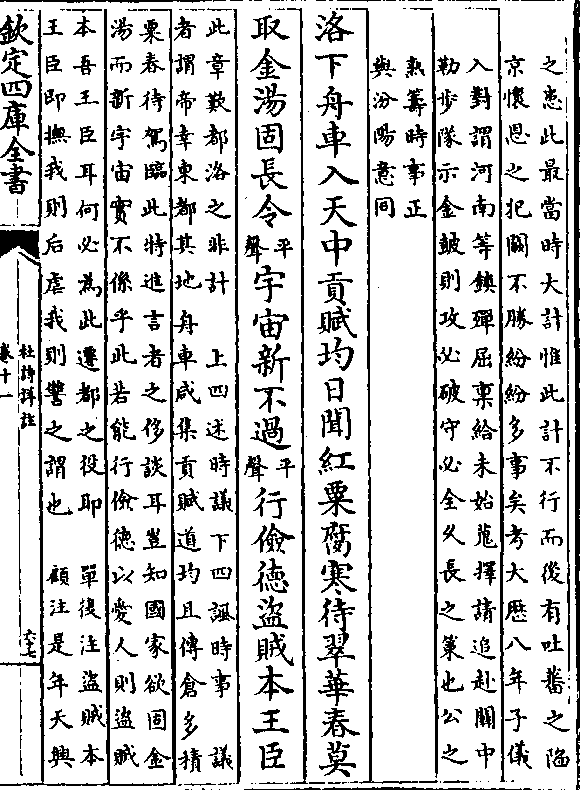 之患此最當時大計惟此計不行而後有吐蕃之陷
京懷恩之犯關不勝紛紛多事矣考大厯八年子儀
入對謂河南等鎮殫屈稟給未始蒐擇請追赴關中
勒步隊示金鼓則攻必破守必全久長之策也公之
熟籌時事正
與汾陽意同
洛下舟車入天中貢賦均日聞紅粟腐寒待翠華春莫
取金湯固長令平聲宇宙新不過平聲行儉德盜賊本王臣
此章歎都洛之非計　上四述時議下四諷時事　議
者謂帝幸東都其地舟車咸集貢賦道均且傳倉多積
粟春待駕臨此特進言者之侈談耳豈知國家欲固金
湯而新宇宙實不係乎此若能行儉德以愛人則盜賊
本吾王臣耳何必為此遷都之役耶　單復注盜賊本
王臣即撫我則后虐我則讐之謂也　顧注是年天興
欽定四庫全書
杜詩詳註
卷十一
六七